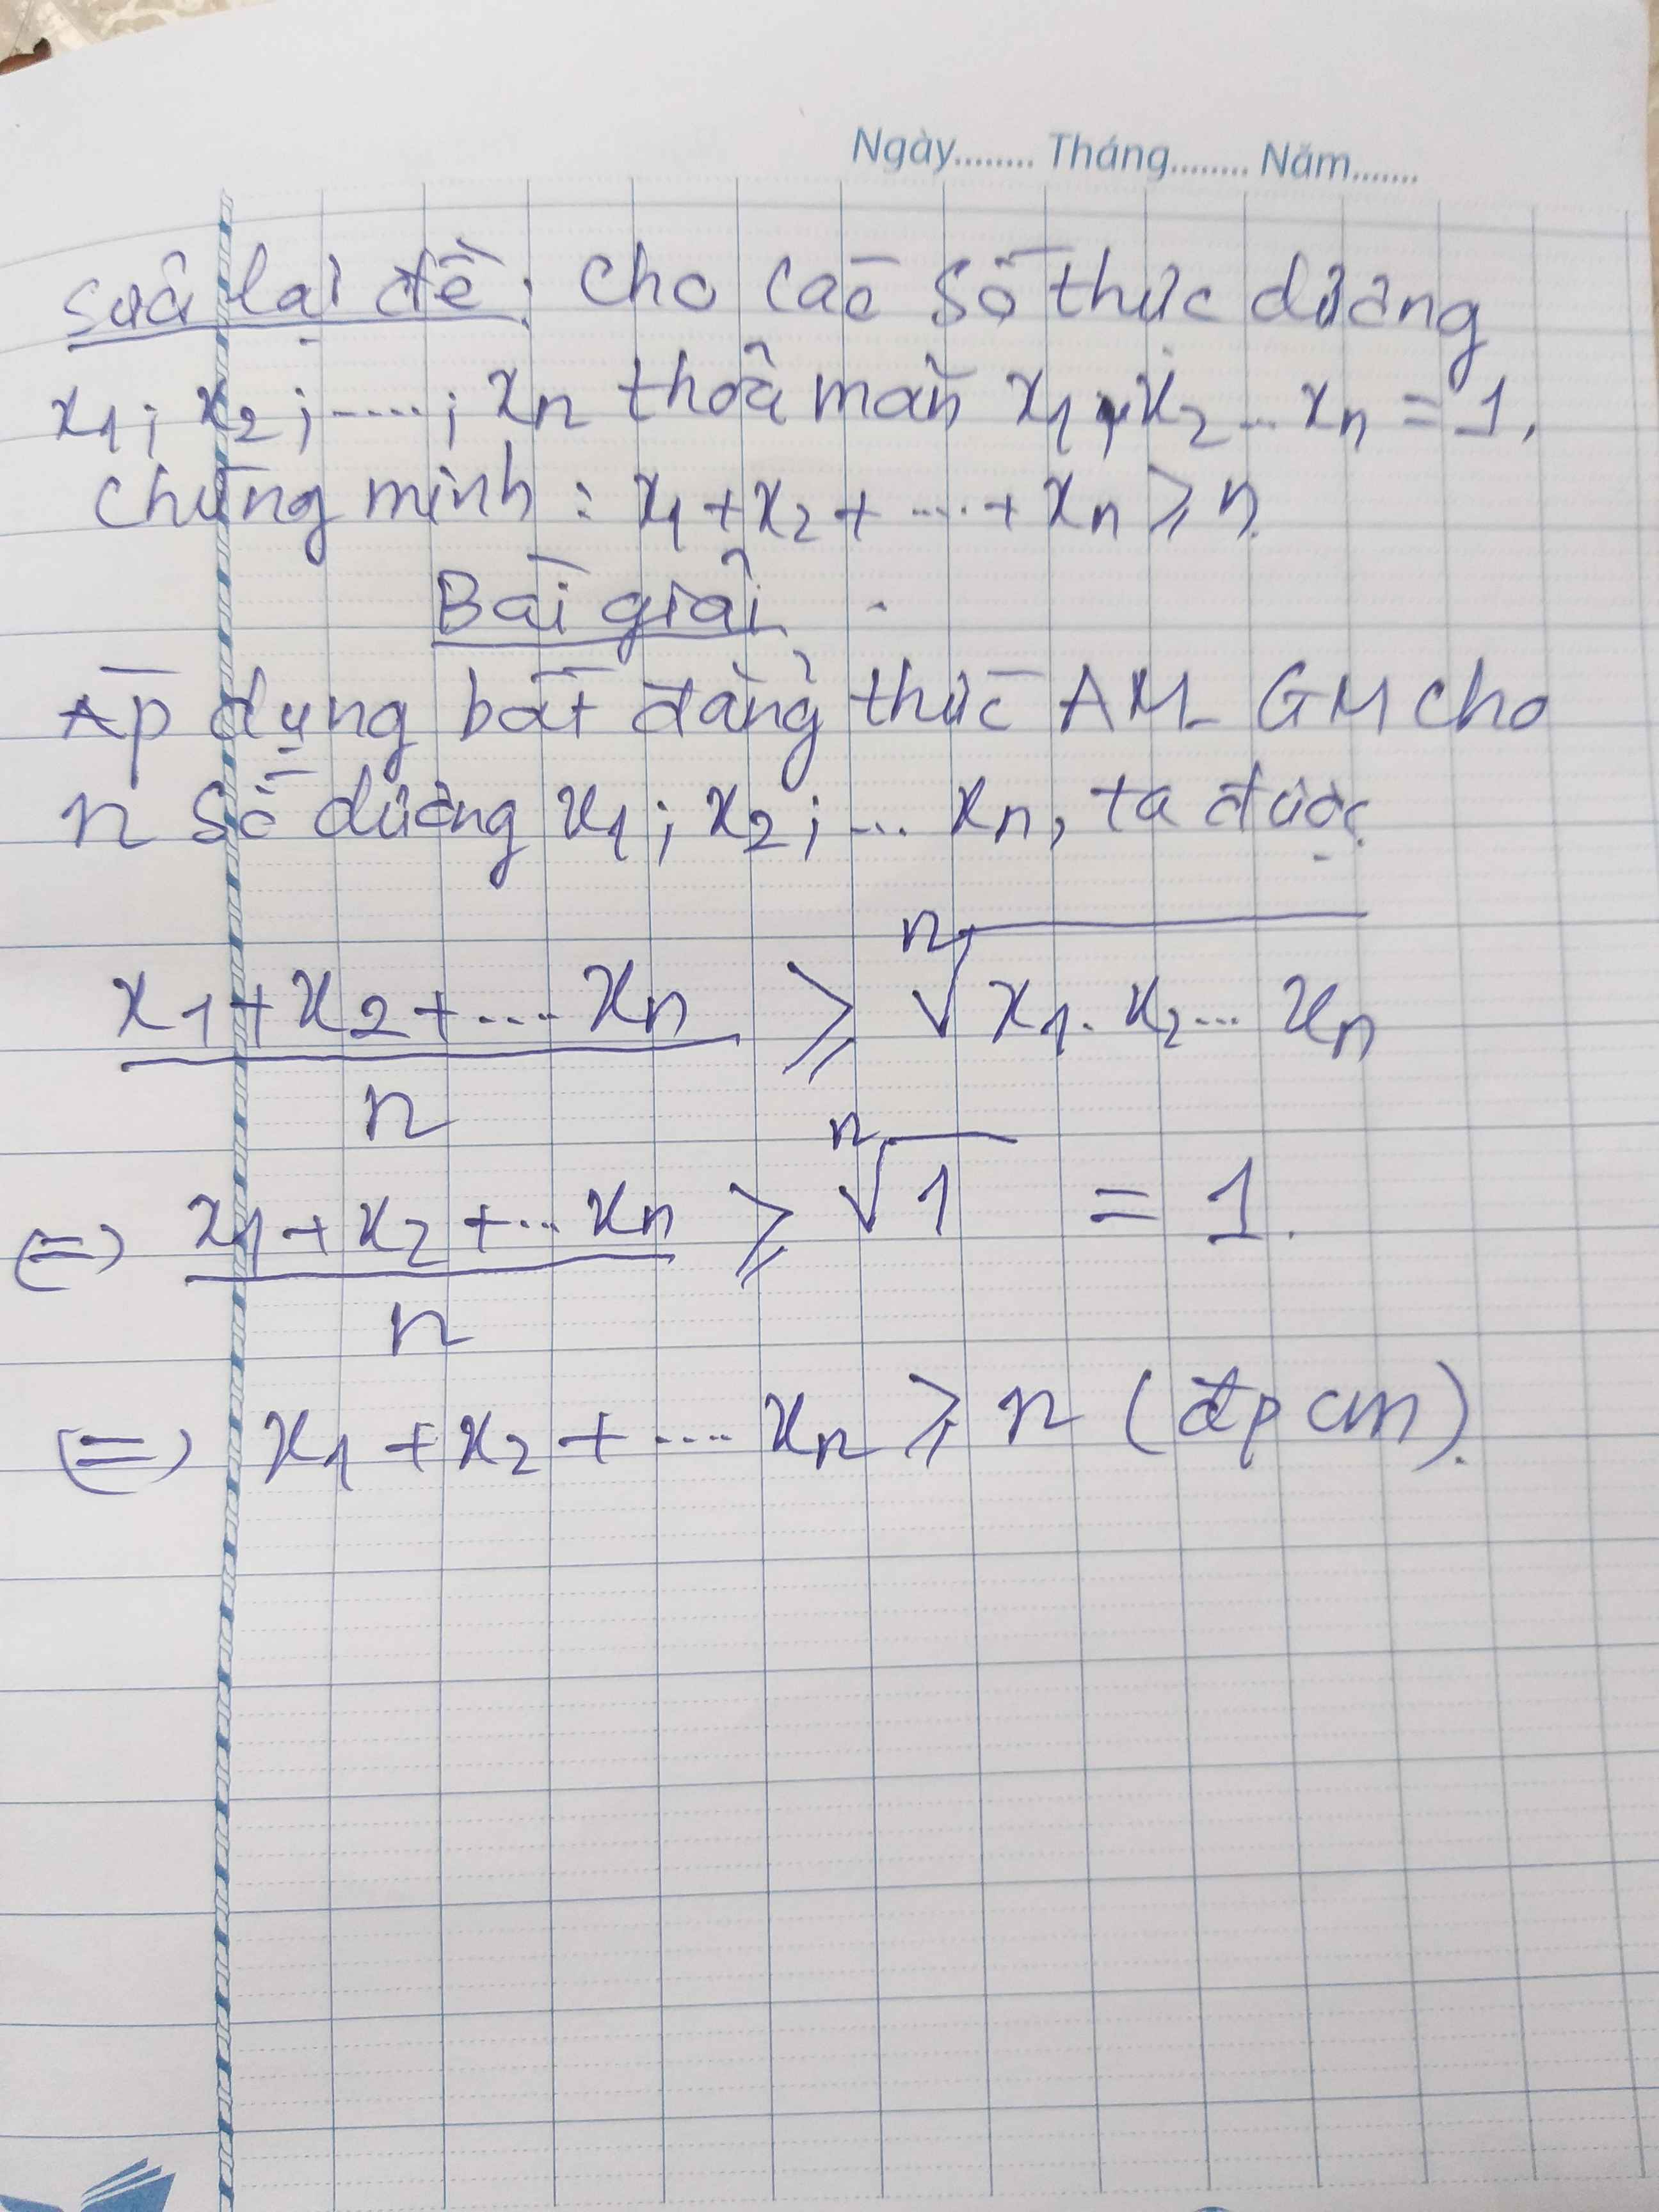 Ngày........ Tháng........ Năm.......
Sửa lại đề: Cho các số thực dương
x₁; x₂; .....; xₙ thoả mãn x₁.x₂...xₙ = 1.
Chứng minh: x₁ + x₂ + ....+ xₙ ⩾ n.
Bài giải
Áp dụng bất đẳng thức AM-GM cho
n số dương x₁; x₂; ... xₙ, ta được
(x₁ + x₂ + .... xₙ)/n ⩾ ⁿ√(x₁.x₂... xₙ)
(=) (x₁ + x₂ + ... xₙ)/n ⩾ ⁿ√1 = 1.
(=) x₁ + x₂ + .... xₙ ⩾ n (đpcm).